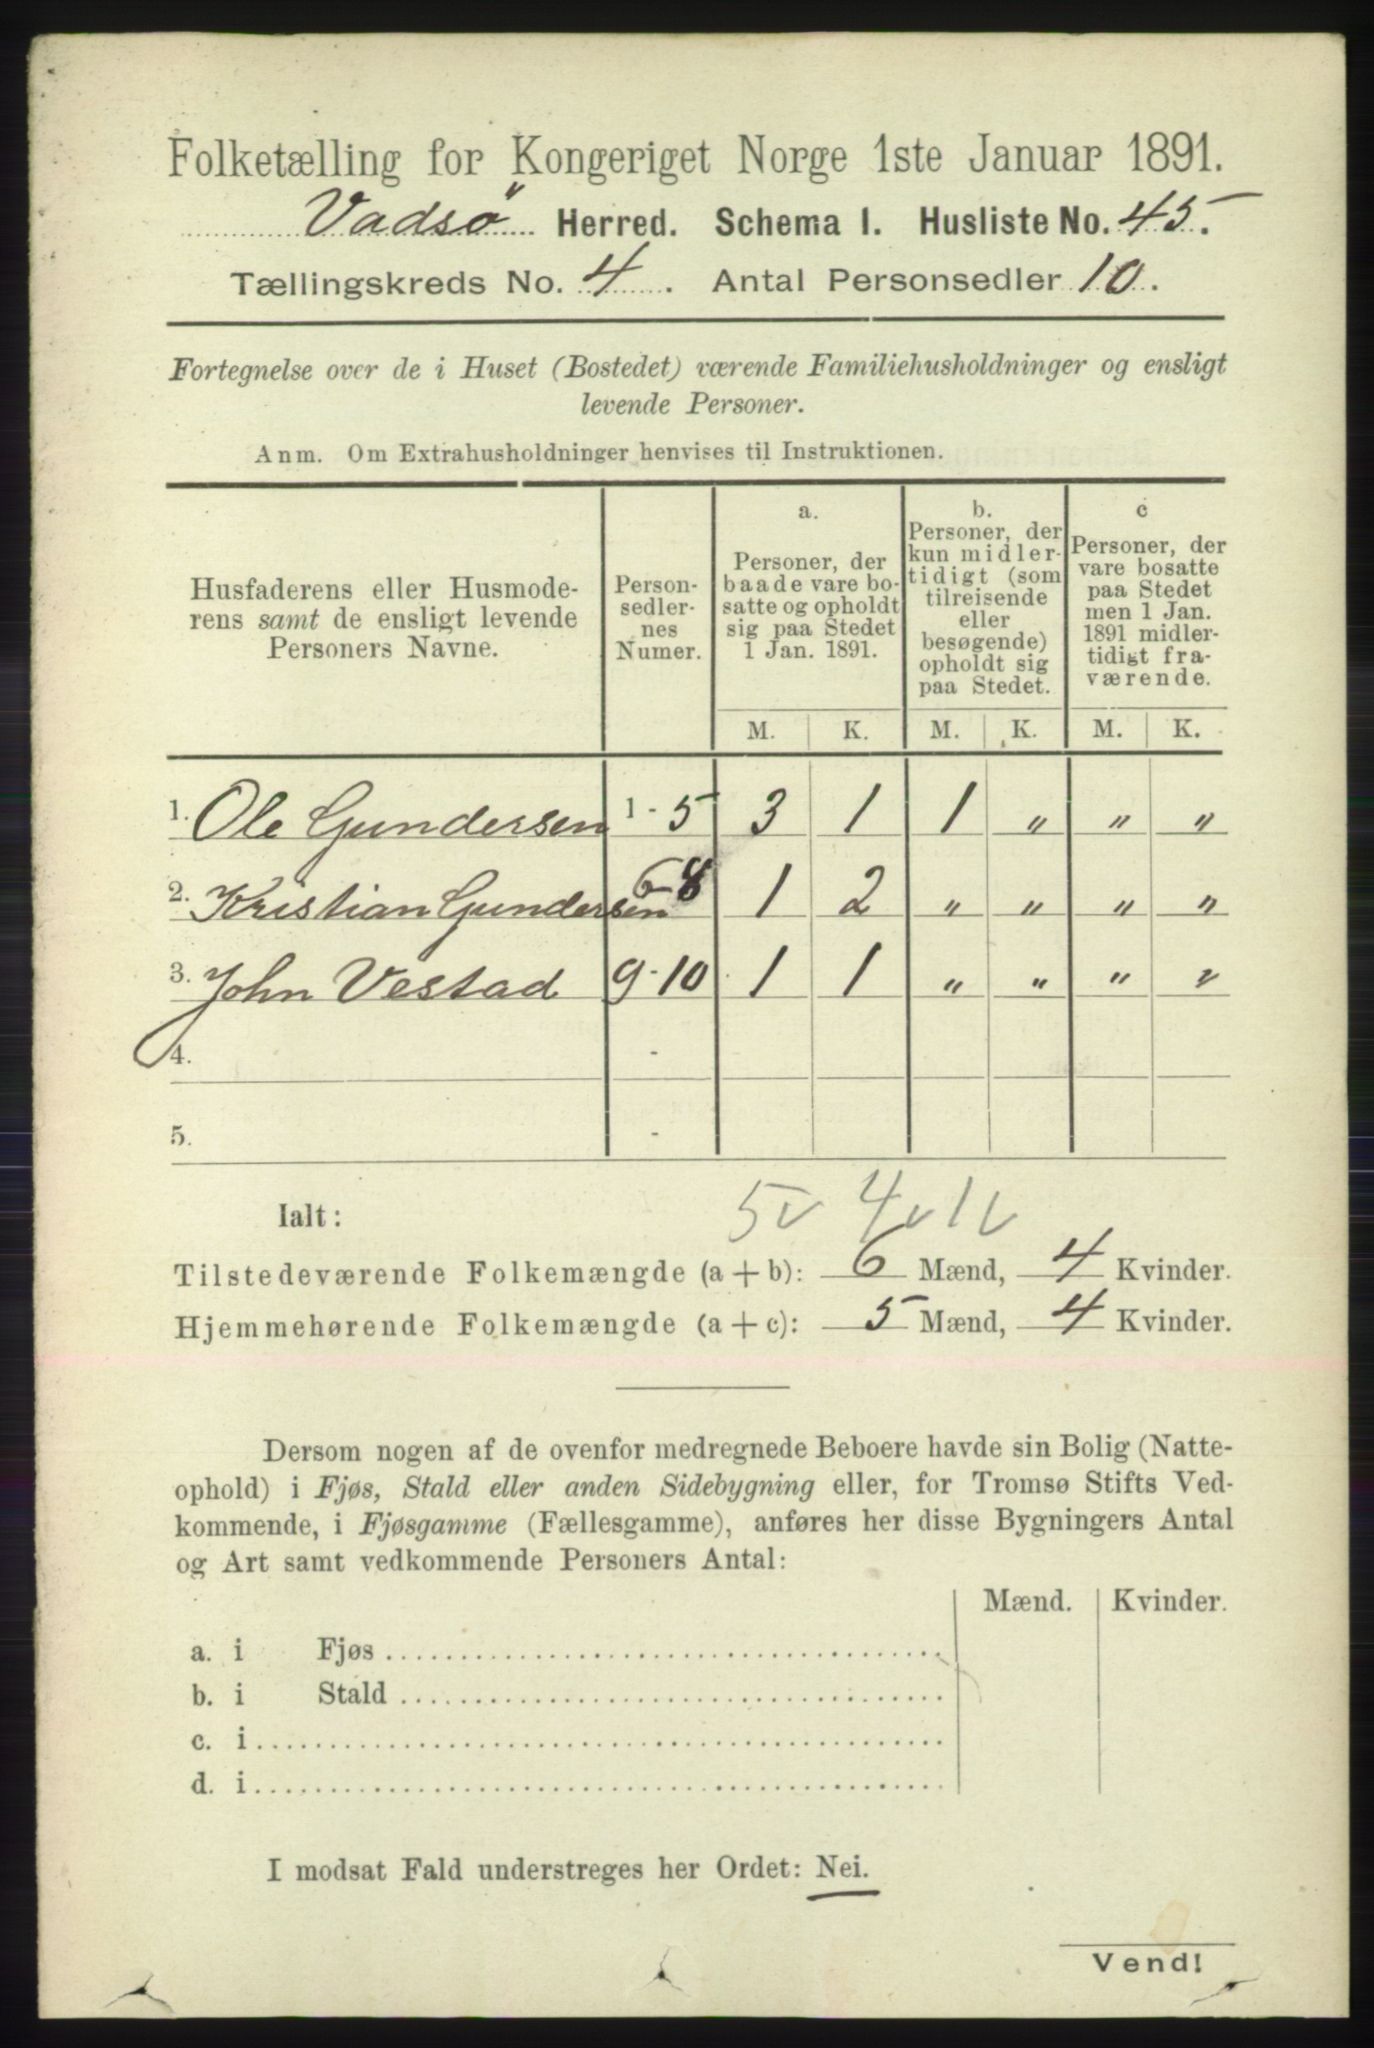 Folketælling for Kongeriget Norge 1ste Januar 1891.
Vadsö Herred. Schema I. Husliste No. 45.
Tællingskreds No. 4. Antal Personsedler 10.
Fortegnelse over de i Huset (Bostedet) værende Familiehusholdninger og ensligt
levende Personer.
Anm. Om Extrahusholdninger henvises til Instruktionen.
Husfaderens eller Husmode-
rens samt de ensligt levende
Personers Navne.
Person-
sedler-
nes
Numer.
a.
Personer, der
baade vare bo-
satte og opholdt
sig paa Stedet
1 Jan. 1891.
b.
Personer, der
kun midler-
tidigt (som
tilreisende
eller
besøgende)
opholdt sig
paa Stedet.
c
Personer, der
vare bosatte
paa Stedet
men 1 Jan.
1891 midler-
tidigt fra-
værende.
M. K. M. K. M. K.
1. Ole Gundersen 1-5 3 1 1 " " "
2. Kristian Gundersen 6-8 1 2 " " " "
3. John Vestad 9-10 1 1 " " " "
4. -
5. -
5v 4v 1v
Ialt:
Tilstedeværende Folkemængde (a+b): 6 Mænd, 4 Kvinder.
Hjemmehørende Folkemængde (a+c): 5 Mænd, 4 Kvinder.
Dersom nogen af de ovenfor medregnede Beboere havde sin Bolig (Natte-
ophold) i Fjøs, Stald eller anden Sidebygning eller, for Tromsø Stifts Ved-
kommende, i Fjøsgamme (Fællesgamme), anføres her disse Bygningers Antal
og Art samt vedkommende Personers Antal:
Mænd. Kvinder.
a. i Fjøs
b. i Stald
c. i
d. i
I modsat Fald understreges her Ordet: Nei.
Vend!